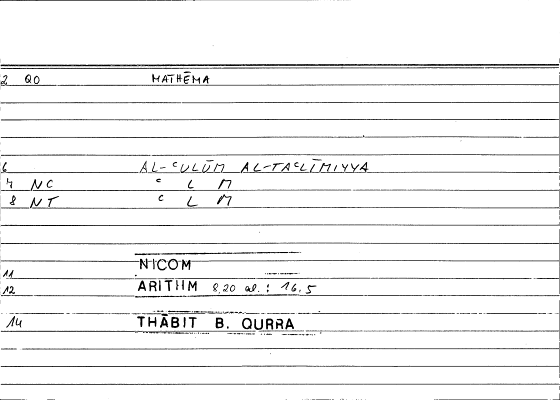 2 QO MATHĒMA
6 AL-ᶜULŪM AL-TAᶜLĪMIYYA
7 NC ᶜ L M
8 NT ᶜ L M
11 NICOM
12 ARITHM 8,20 al.: 16.5
14 THĀBIT B. QURRA